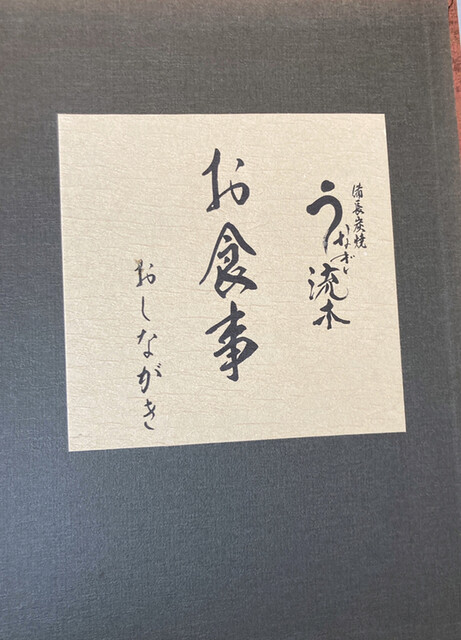 備長炭焼
うなぎ流木
お食事
おしながき